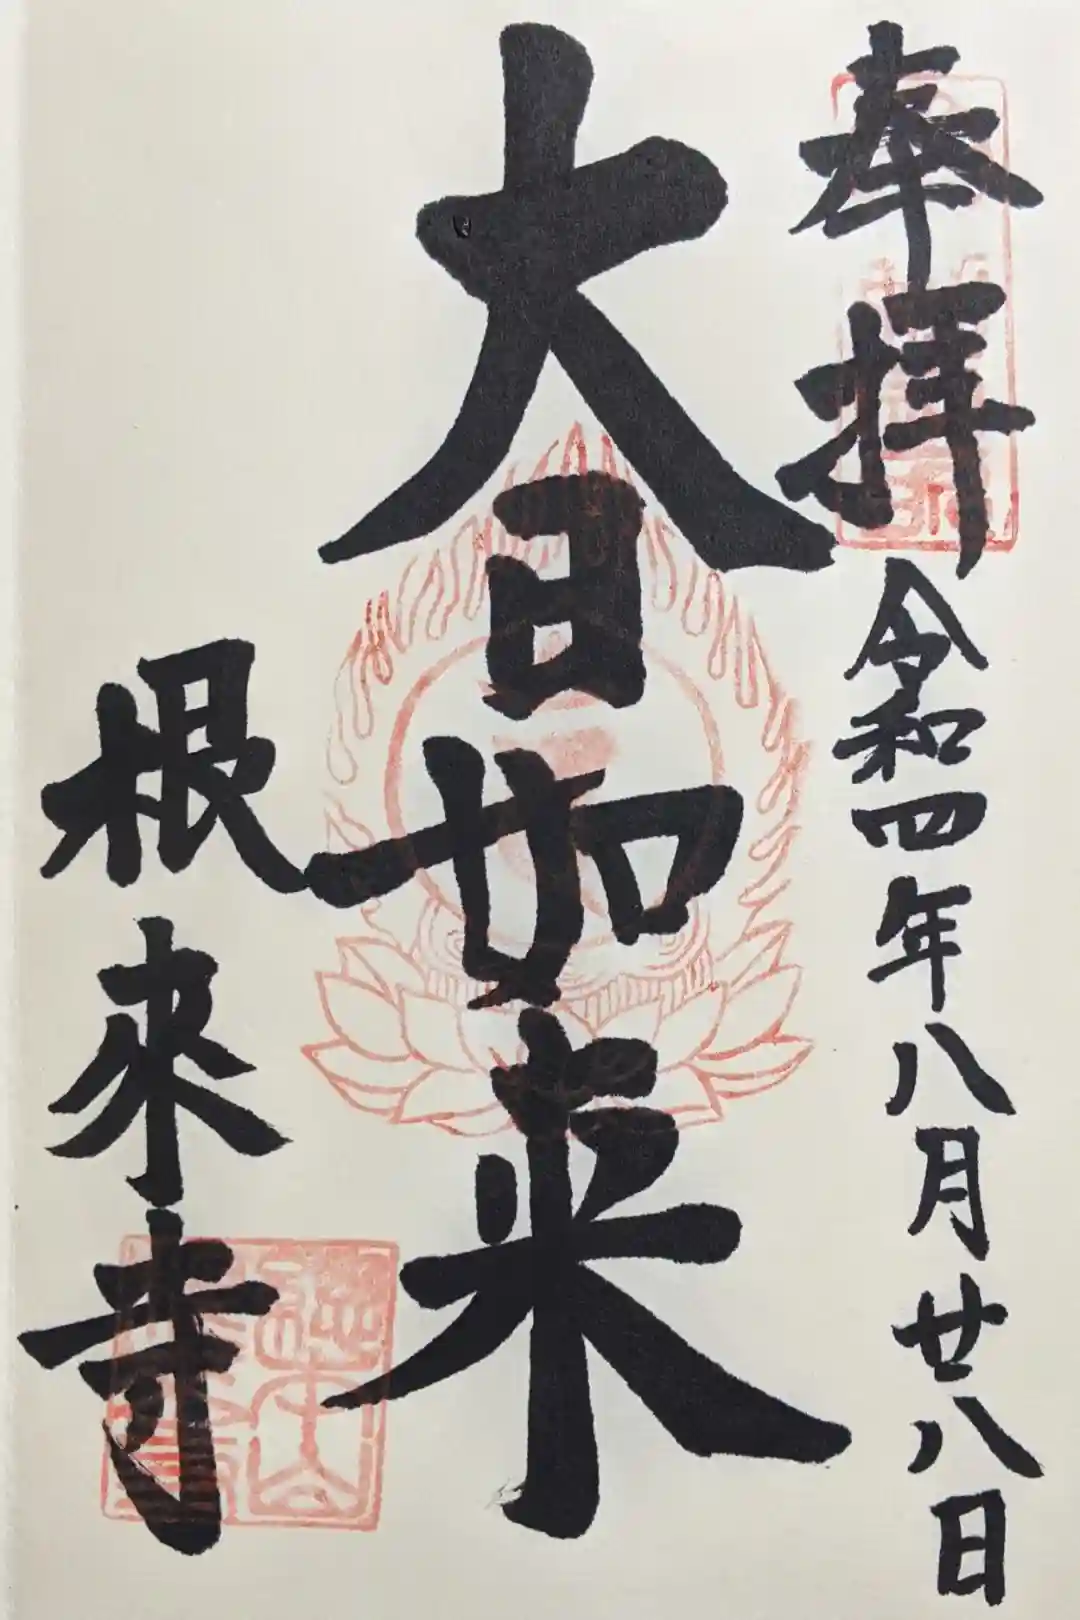 奉拝 令和四年八月廿八日
大日如来
根來寺